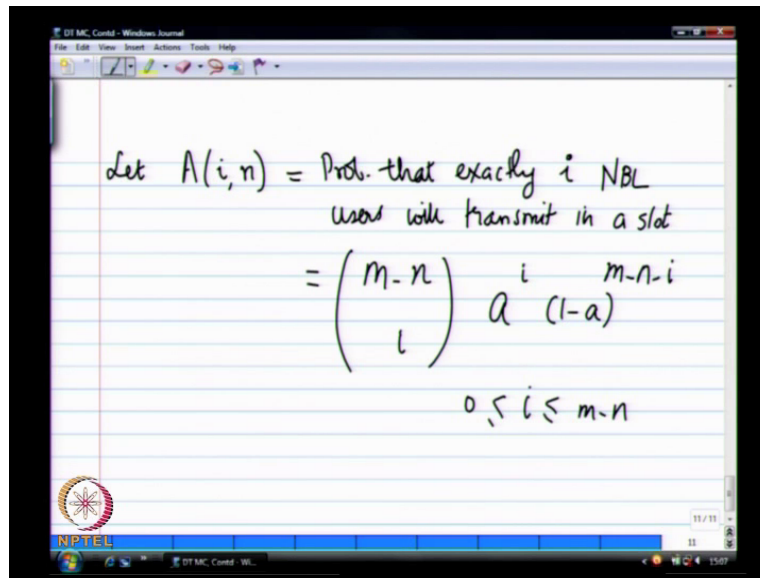 DT MC, Contd - Windows Journal
File Edit View Insert Actions Tools Help
Let A(i,n) = Prob. that exactly i NBL
users will transmit in a slot
= ( m-n
i ) a^i (1-a)^m-n-i
0 ≤ i ≤ m-n
NPTEL
11 / 11
11
DT MC, Contd - Wi...
1507